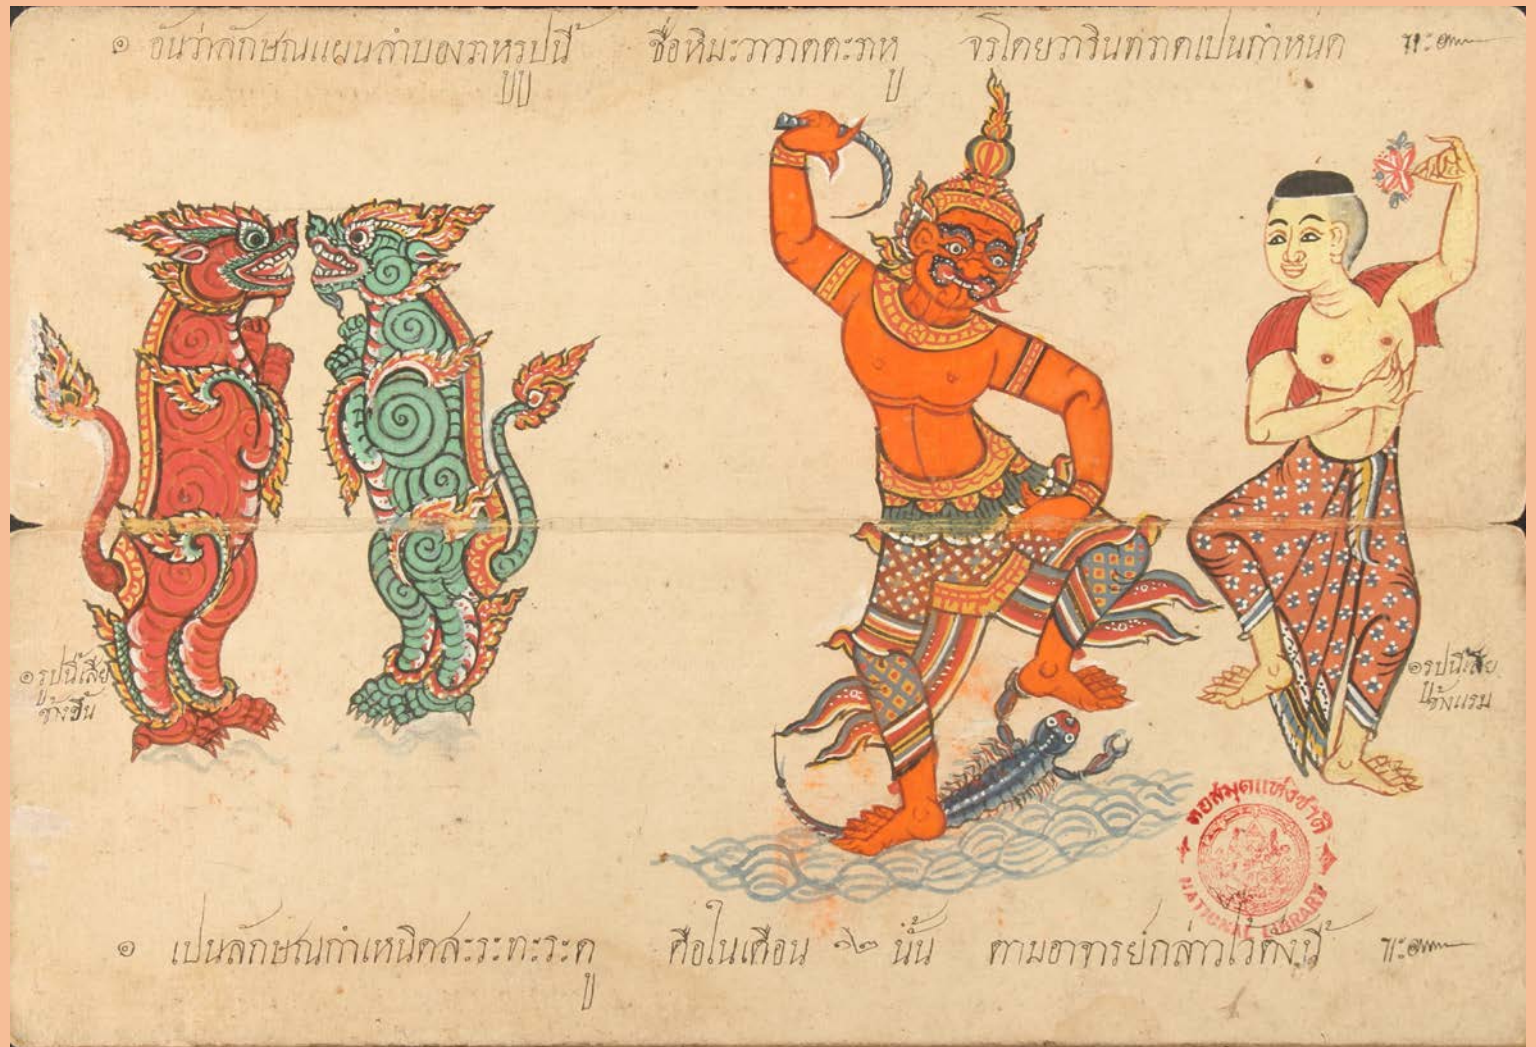 ๑ อันว่าลักษณแผนลำบองราหูรูปนี้ ชื่อหิมะวาาตตะราหู จรโดยวารินทราคเปนกำหนด ฯะ๛
๑ รูปนี้เสีย
ข้างขึ้น
๑ รูปนี้เสีย
ข้างแรม
หอสมุดแห่งชาติ
NATIONAL LIBRARY
๑ เปนลักษณกำเหนิดสะระทะระดู คือในเดือน ๑๒ นั้น ตามอาจารย์กล่าวไว้ดังนี้ ฯะ๛